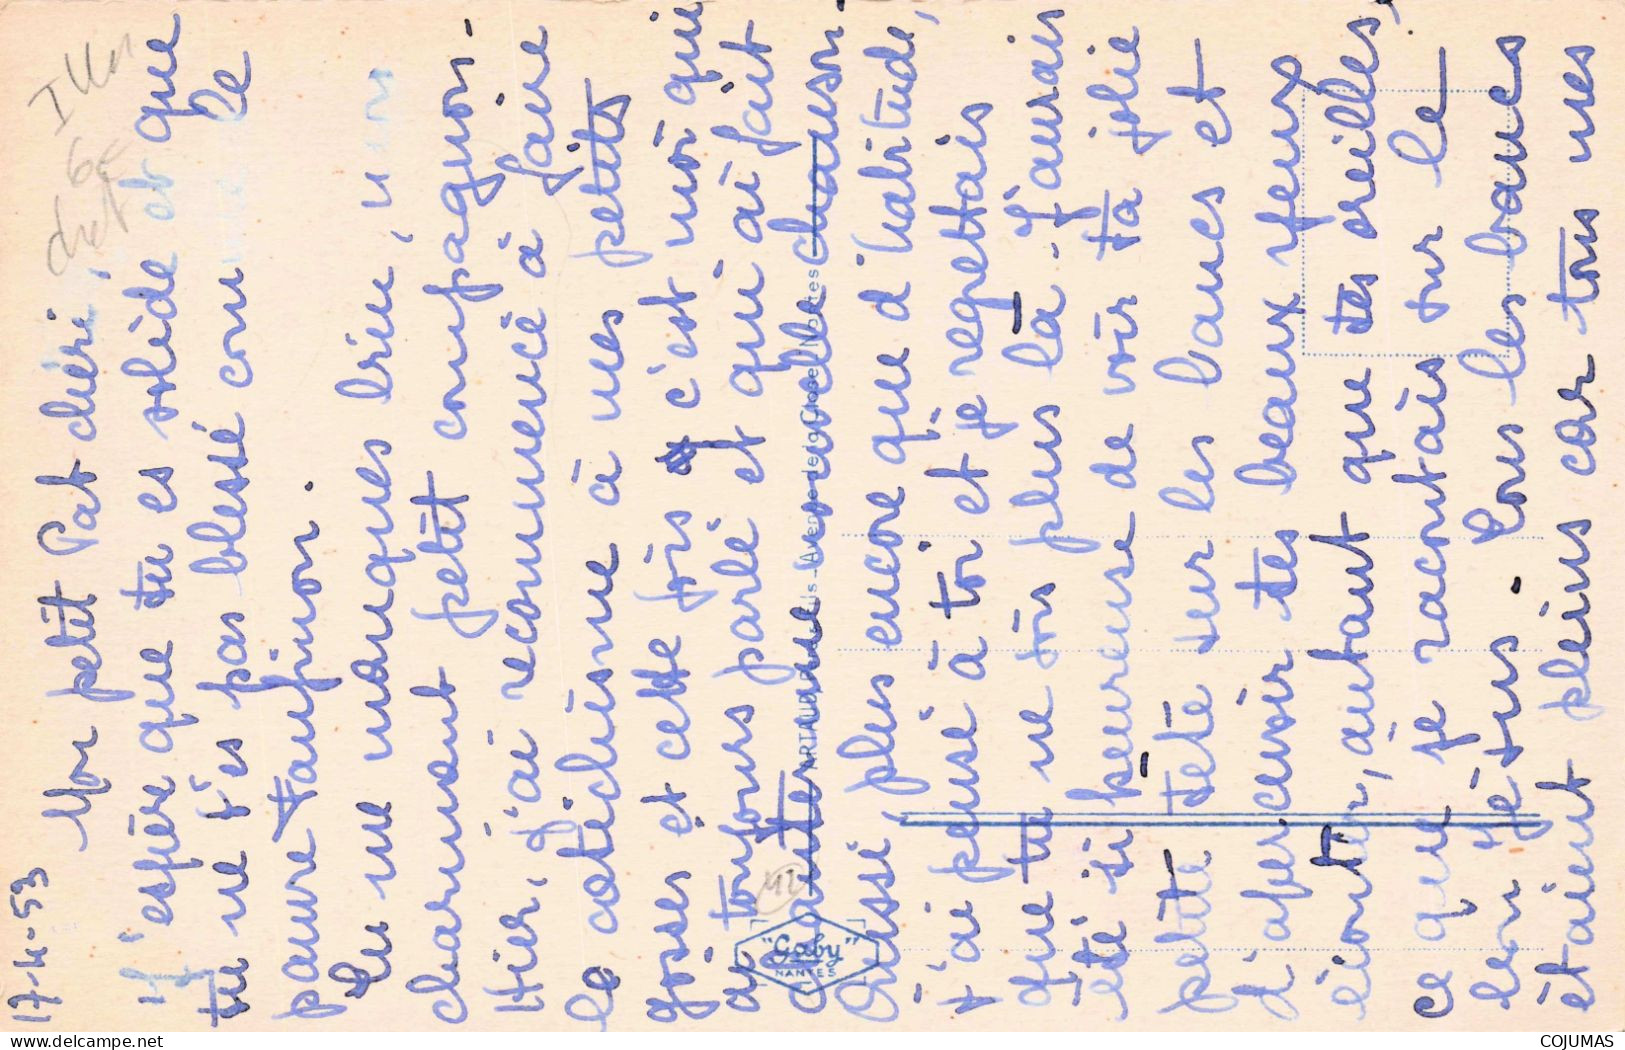 17-4-53 Mon petit Pat chéri,
J'espère que tu es solide et que
tu ne t'es pas blessé comme le
pauvre Fanfinon.
Tu me manques bien, mon
charmant petit compagnon.
Hier, j'ai recommencé à faire
le catéchisme à mes petits
gosses et cette fois c'est moi qui
ai toujours parlé et qui ai fait
chanter une nouvelle chanson.
Aussi, plus encore que d'habitude,
j'ai pensé à toi et je regrettais
que tu ne sois plus là. J'aurais
été si heureuse de voir ta jolie
petite tête sur les bancs et
d'apercevoir tes beaux yeux
écouter, autant que tes oreilles,
ce que je racontais sur le
bon Jésus. Tous les bancs
étaient pleins car tous mes
"Gaby"
NANTES
ARTAUD
Nantes
www.delcampe.net
COJUMAS